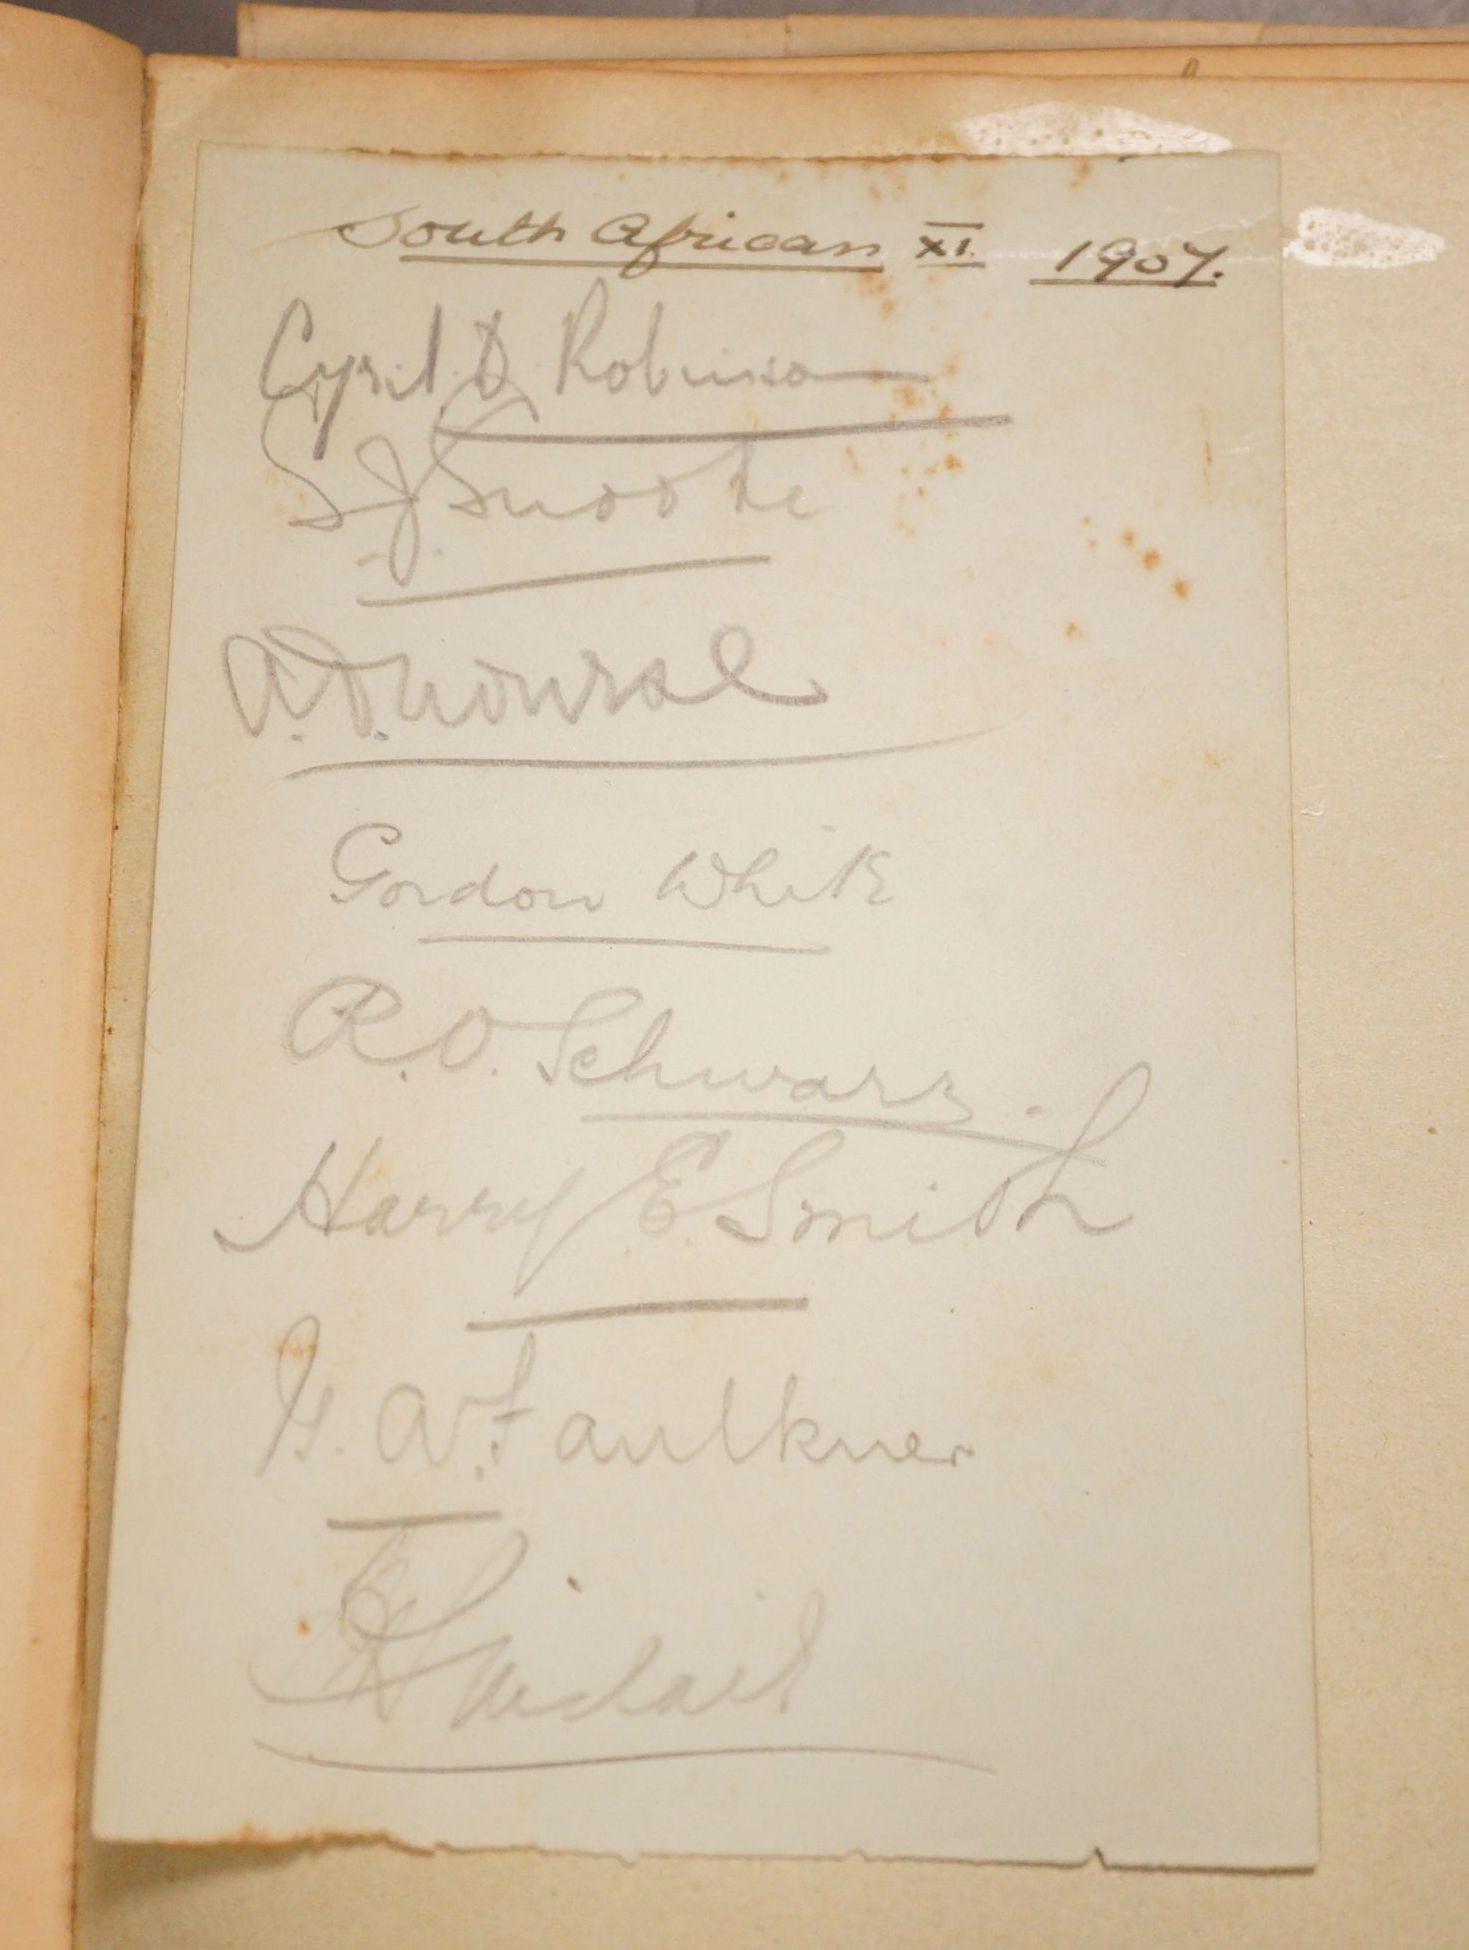 South African XI. 1907.
Cyril D Robinson
S. J. Snooke
A.D. Nourse
Gordon White
R.O. Schwarz.
Harry E. Smith
G. A. Faulkner
Sinclair